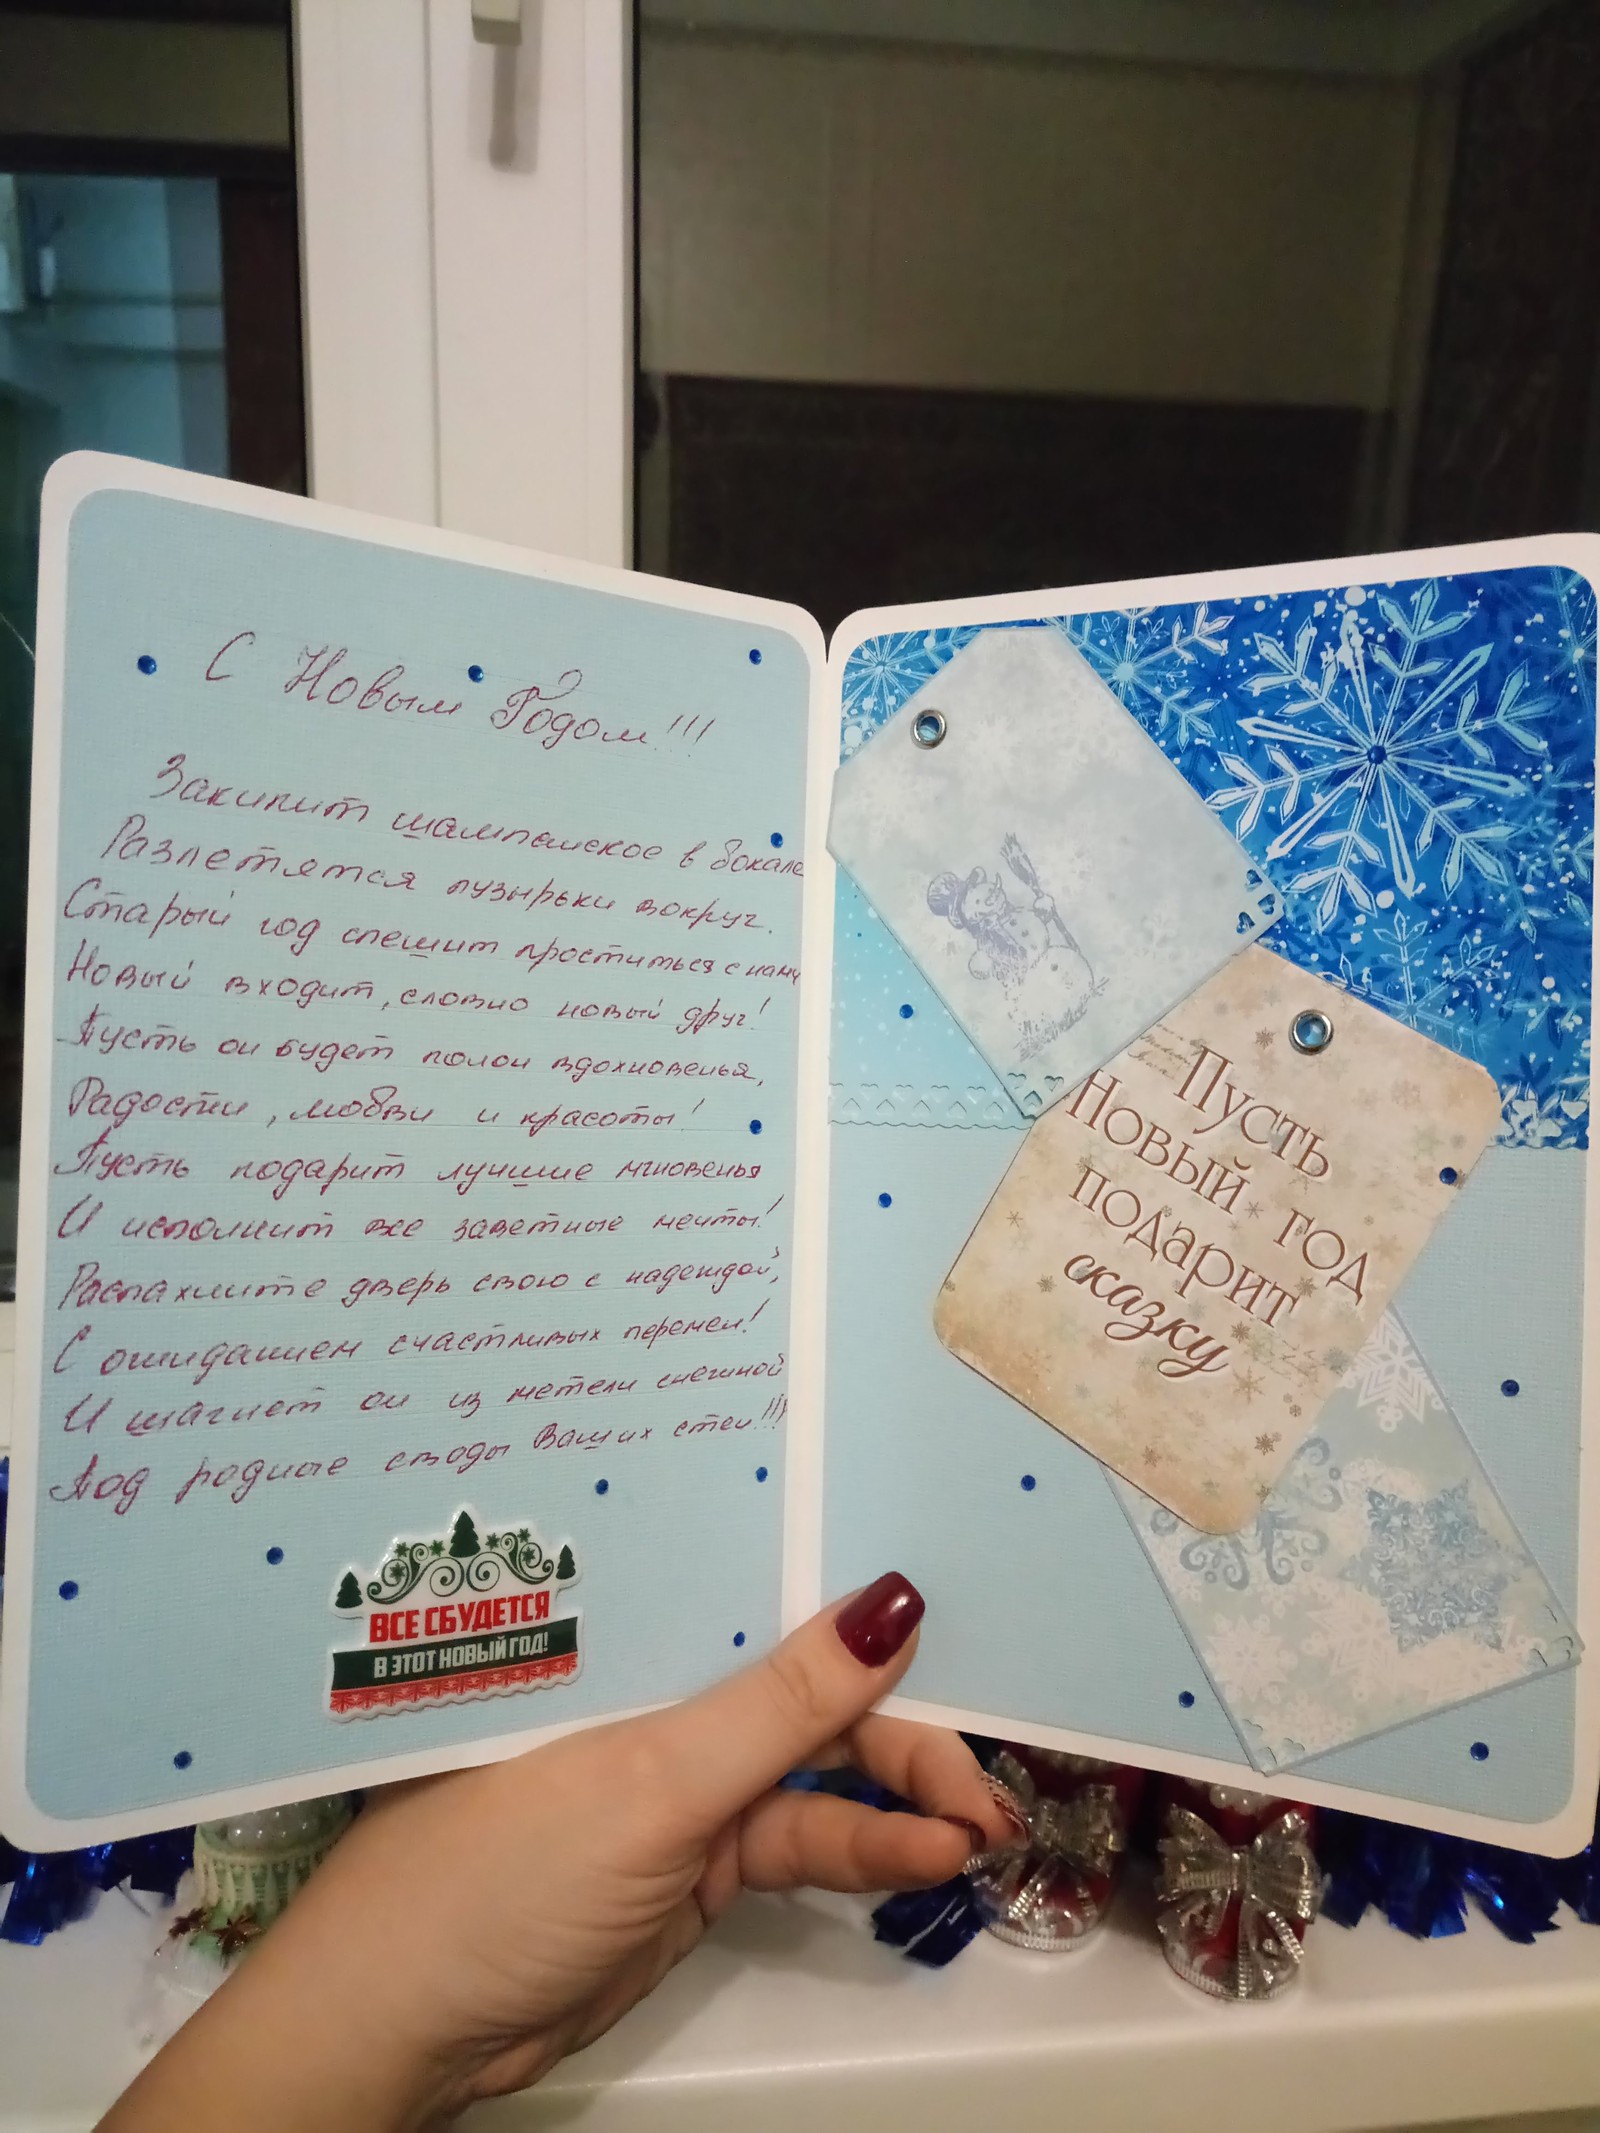 С Новым Годом!!!
Закипит шампанское в бокале
Разлетятся пузырьки вокруг.
Старый год спешит проститься с нами
Новый входит, словно новый друг!
Пусть он будет полон вдохновенья,
Радости, любви и красоты!
Пусть подарит лучшие мгновенья
И исполнит все заветные мечты!
Распахните дверь свою с надеждой,
С ожиданием счастливых перемен!
И шагнет он из метели снежной
Под родные своды Ваших стен!!!
ВСЕ СБУДЕТСЯ
В ЭТОТ НОВЫЙ ГОД!
Пусть
Новый год
подарит
сказку